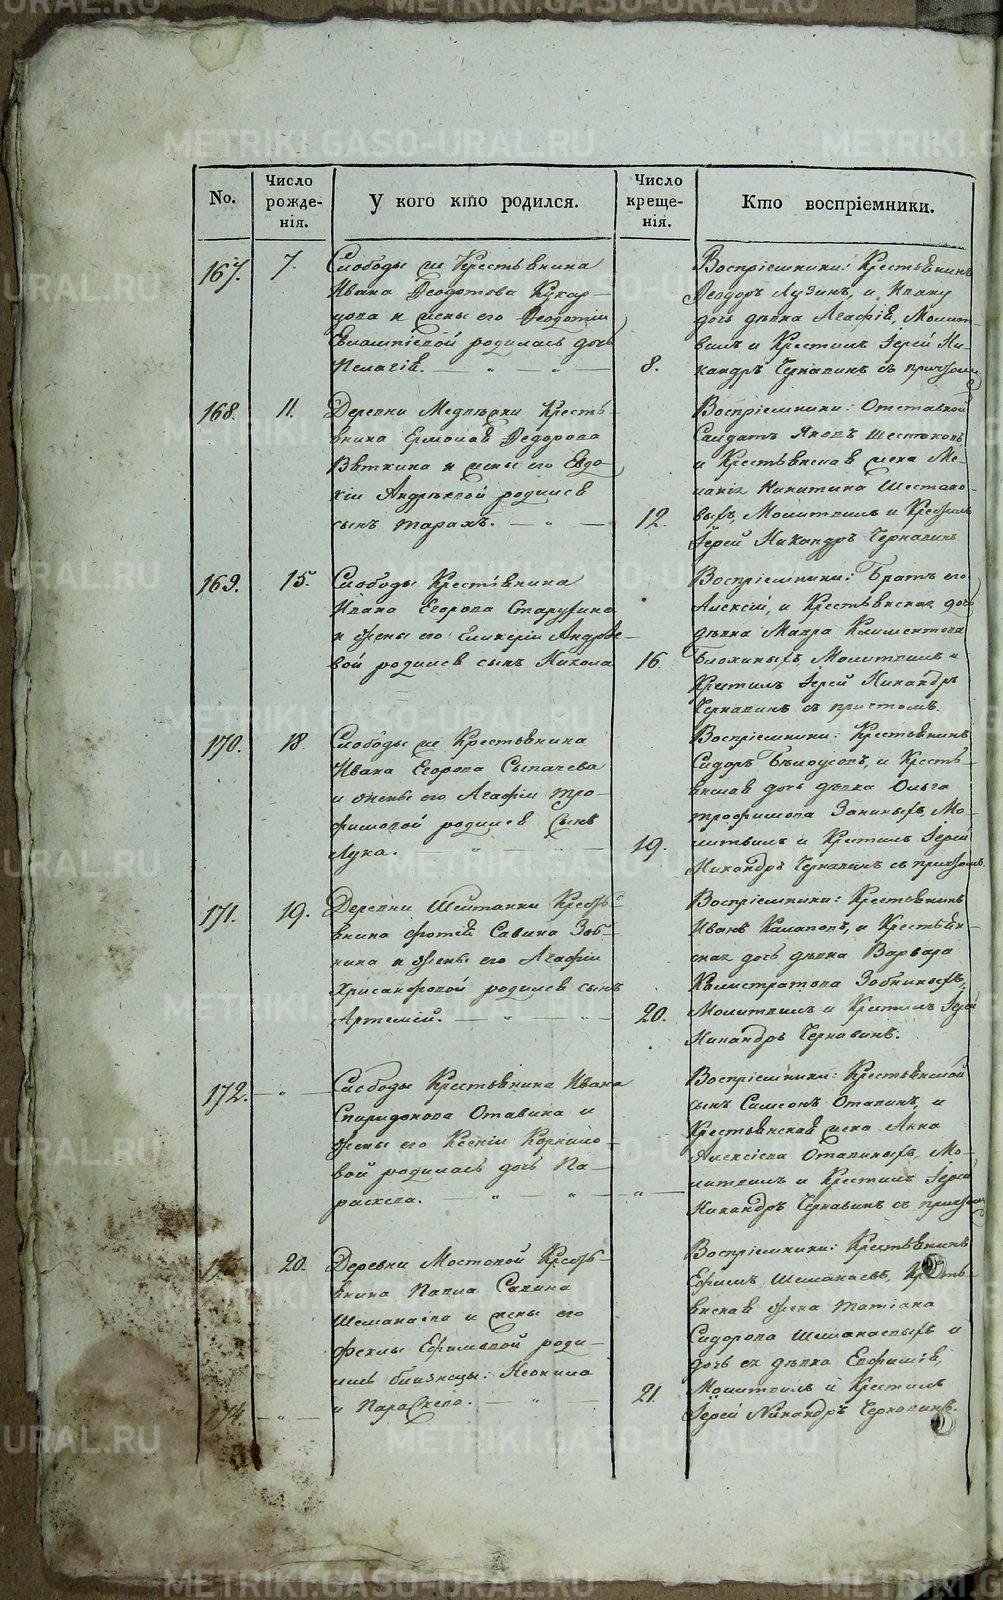 METRIKI.GASO-URAL.RU
No.
Число рожде-нія.
У кого кто родился.
Число креще-нія.
Кто воспріемники.
167. 7.
Слободы сея Крестьянина
Ивана Ѳеодотова
и жены его Ѳеодотіи
родилась дочь
Пелагія.
8.
Воспріемники: Крестьянинъ
Ѳеодоръ Лузинъ, и
дочь дѣвка Агафія, Молит-
вилъ и Крестилъ Іерей Ни-
кандръ Чернавинъ съ причтомъ
168. 11.
Деревни Медвѣдки Кресть-
янина Ермолая Ѳедорова
Вяткина и жены его Евдо-
кіи Андреевой родился
сынъ Тарахъ.
12.
Воспріемники: Отставной
Салдатъ Яковъ Шестаковъ,
и Крестьянская жена Ме-
ланія Никитина Шестако-
выхъ, Молитвилъ и Крестилъ
Іерей Никандръ Чернавинъ
169. 15.
Слободы Крестьянина
Ивана Егорова Старицина
и жены его Гликеріи Андрѣе-
вой родился сынъ Никола
16.
Воспріемники: Братъ его
Алексій, и Крестьянская дочь
дѣвка Мавра Климентова
Блохиныхъ, Молитвилъ и
Крестилъ Іерей Никандръ
Чернавинъ съ причтомъ.
170. 18.
Слободы сея Крестьянина
Ивана Егорова Сыпачева
и жены его Агафіи Тро-
фимовой родился Сынъ
Лука.
19.
Воспріемники: Крестьянинъ
Сидоръ Бѣлоусовъ, и Кресть-
янская дочь дѣвка Ольга
Трофимова Заниныхъ, Мо-
литвилъ и Крестилъ Іерей
Никандръ Чернавинъ съ причтомъ.
171. 19.
Деревни Шайтанки Кресть-
янина Фотія Савина Зоб-
нина и жены его Агафіи
Хрисанфовой родился сынъ
Артемій.
20.
Воспріемники: Крестьянинъ
Иванъ Калаповъ, и Крестьян-
ская дочь дѣвка Варвара
Калистратова Зобниныхъ,
Молитвилъ и Крестилъ Іерей
Никандръ Чернавинъ.
172. — „ —
Слободы Крестьянина Ивана
Спиридонова Отавина и
жены его Ксеніи Корнило-
вой родилась дочь Па-
раскева.
— „ —
Воспріемники: Крестьянской
сынъ Симеонъ Отавинъ, и
Крестьянская жена Анна
Алексіева Отавиныхъ, Мо-
литвилъ и Крестилъ Іерей
Никандръ Чернавинъ съ причтомъ
173. 20.
Деревни Мостовой Кресть-
янина Павла Савина
Шеманаева и жены его
Феклы Ефимовой роди-
лись близнецы: Неонила
174. — „ —
и Параскева.
21.
Воспріемники: Крестьянинъ
Ефимъ Шеманаевъ, Кресть-
янская жена Татіана
Сидорова Шеманаевыхъ и
дочь ея дѣвка Евфимія,
Молитвилъ и Крестилъ
Іерей Никандръ Чернавинъ.